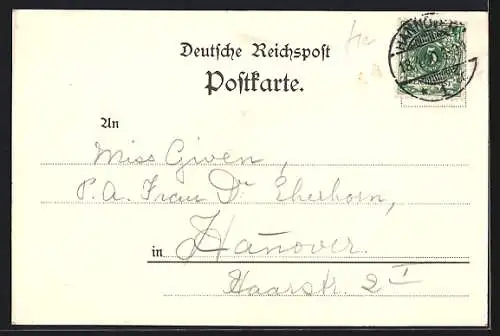 Deutsche Reichspost
Postkarte.
HANNOVER
18.
5
An
Miss Given,
P. A. Frau Dr Eherhorn,
in Hanover.
Haarstr. 2 I